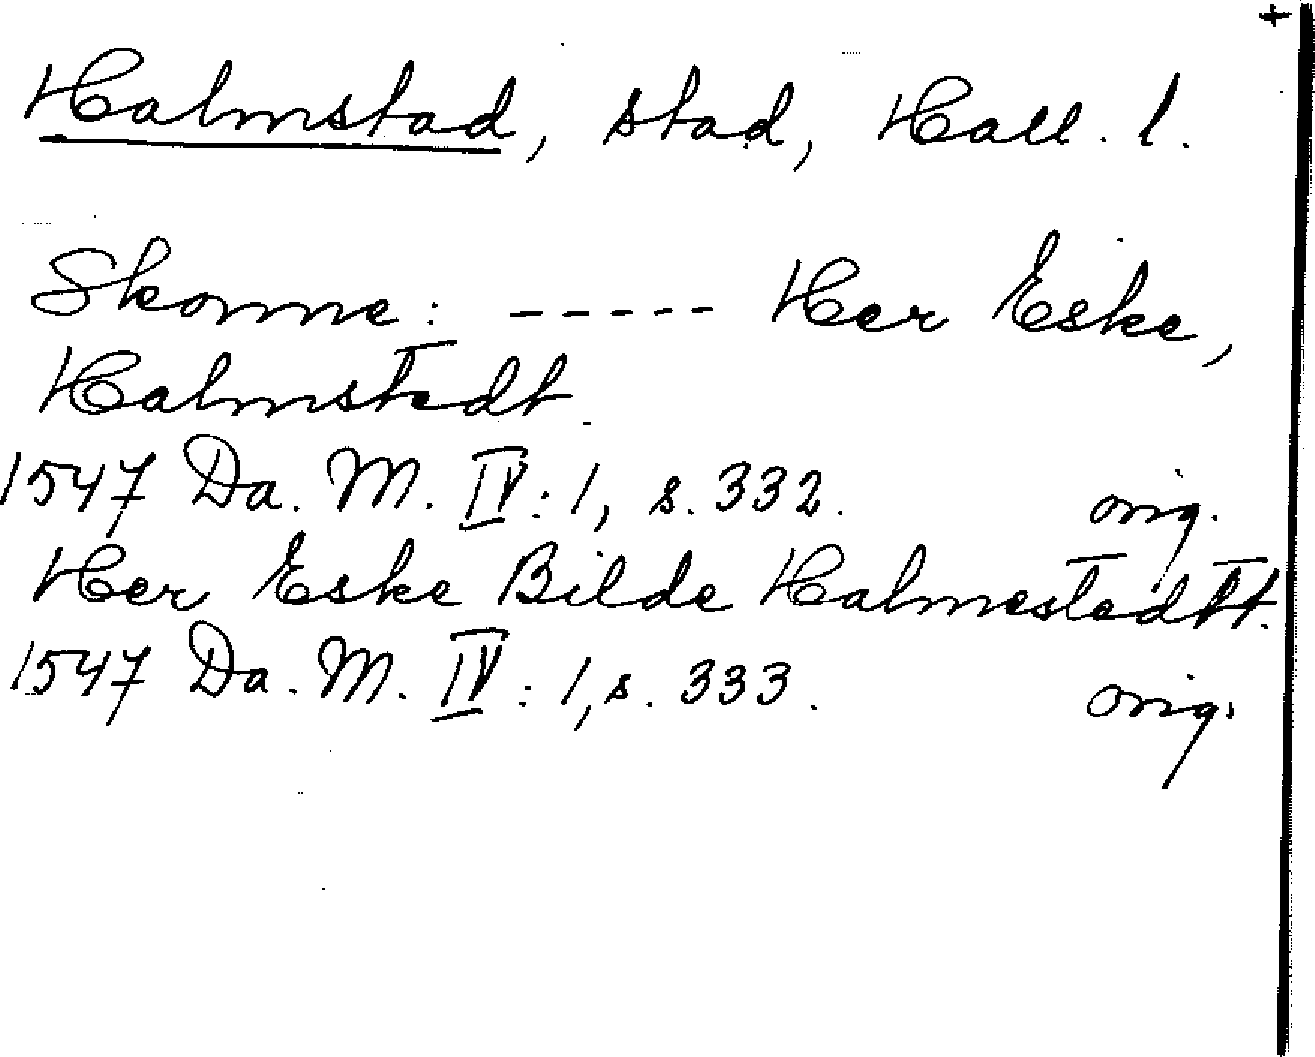 +
Halmstad, stad, Hall. l.
Skonne: ----- Her Eske,
Halmstedt.
1547 Da. M. IV:1, s. 332. orig.
Her Eske Bilde Halmestedtt.
1547 Da. M. IV:1, s. 333. orig.